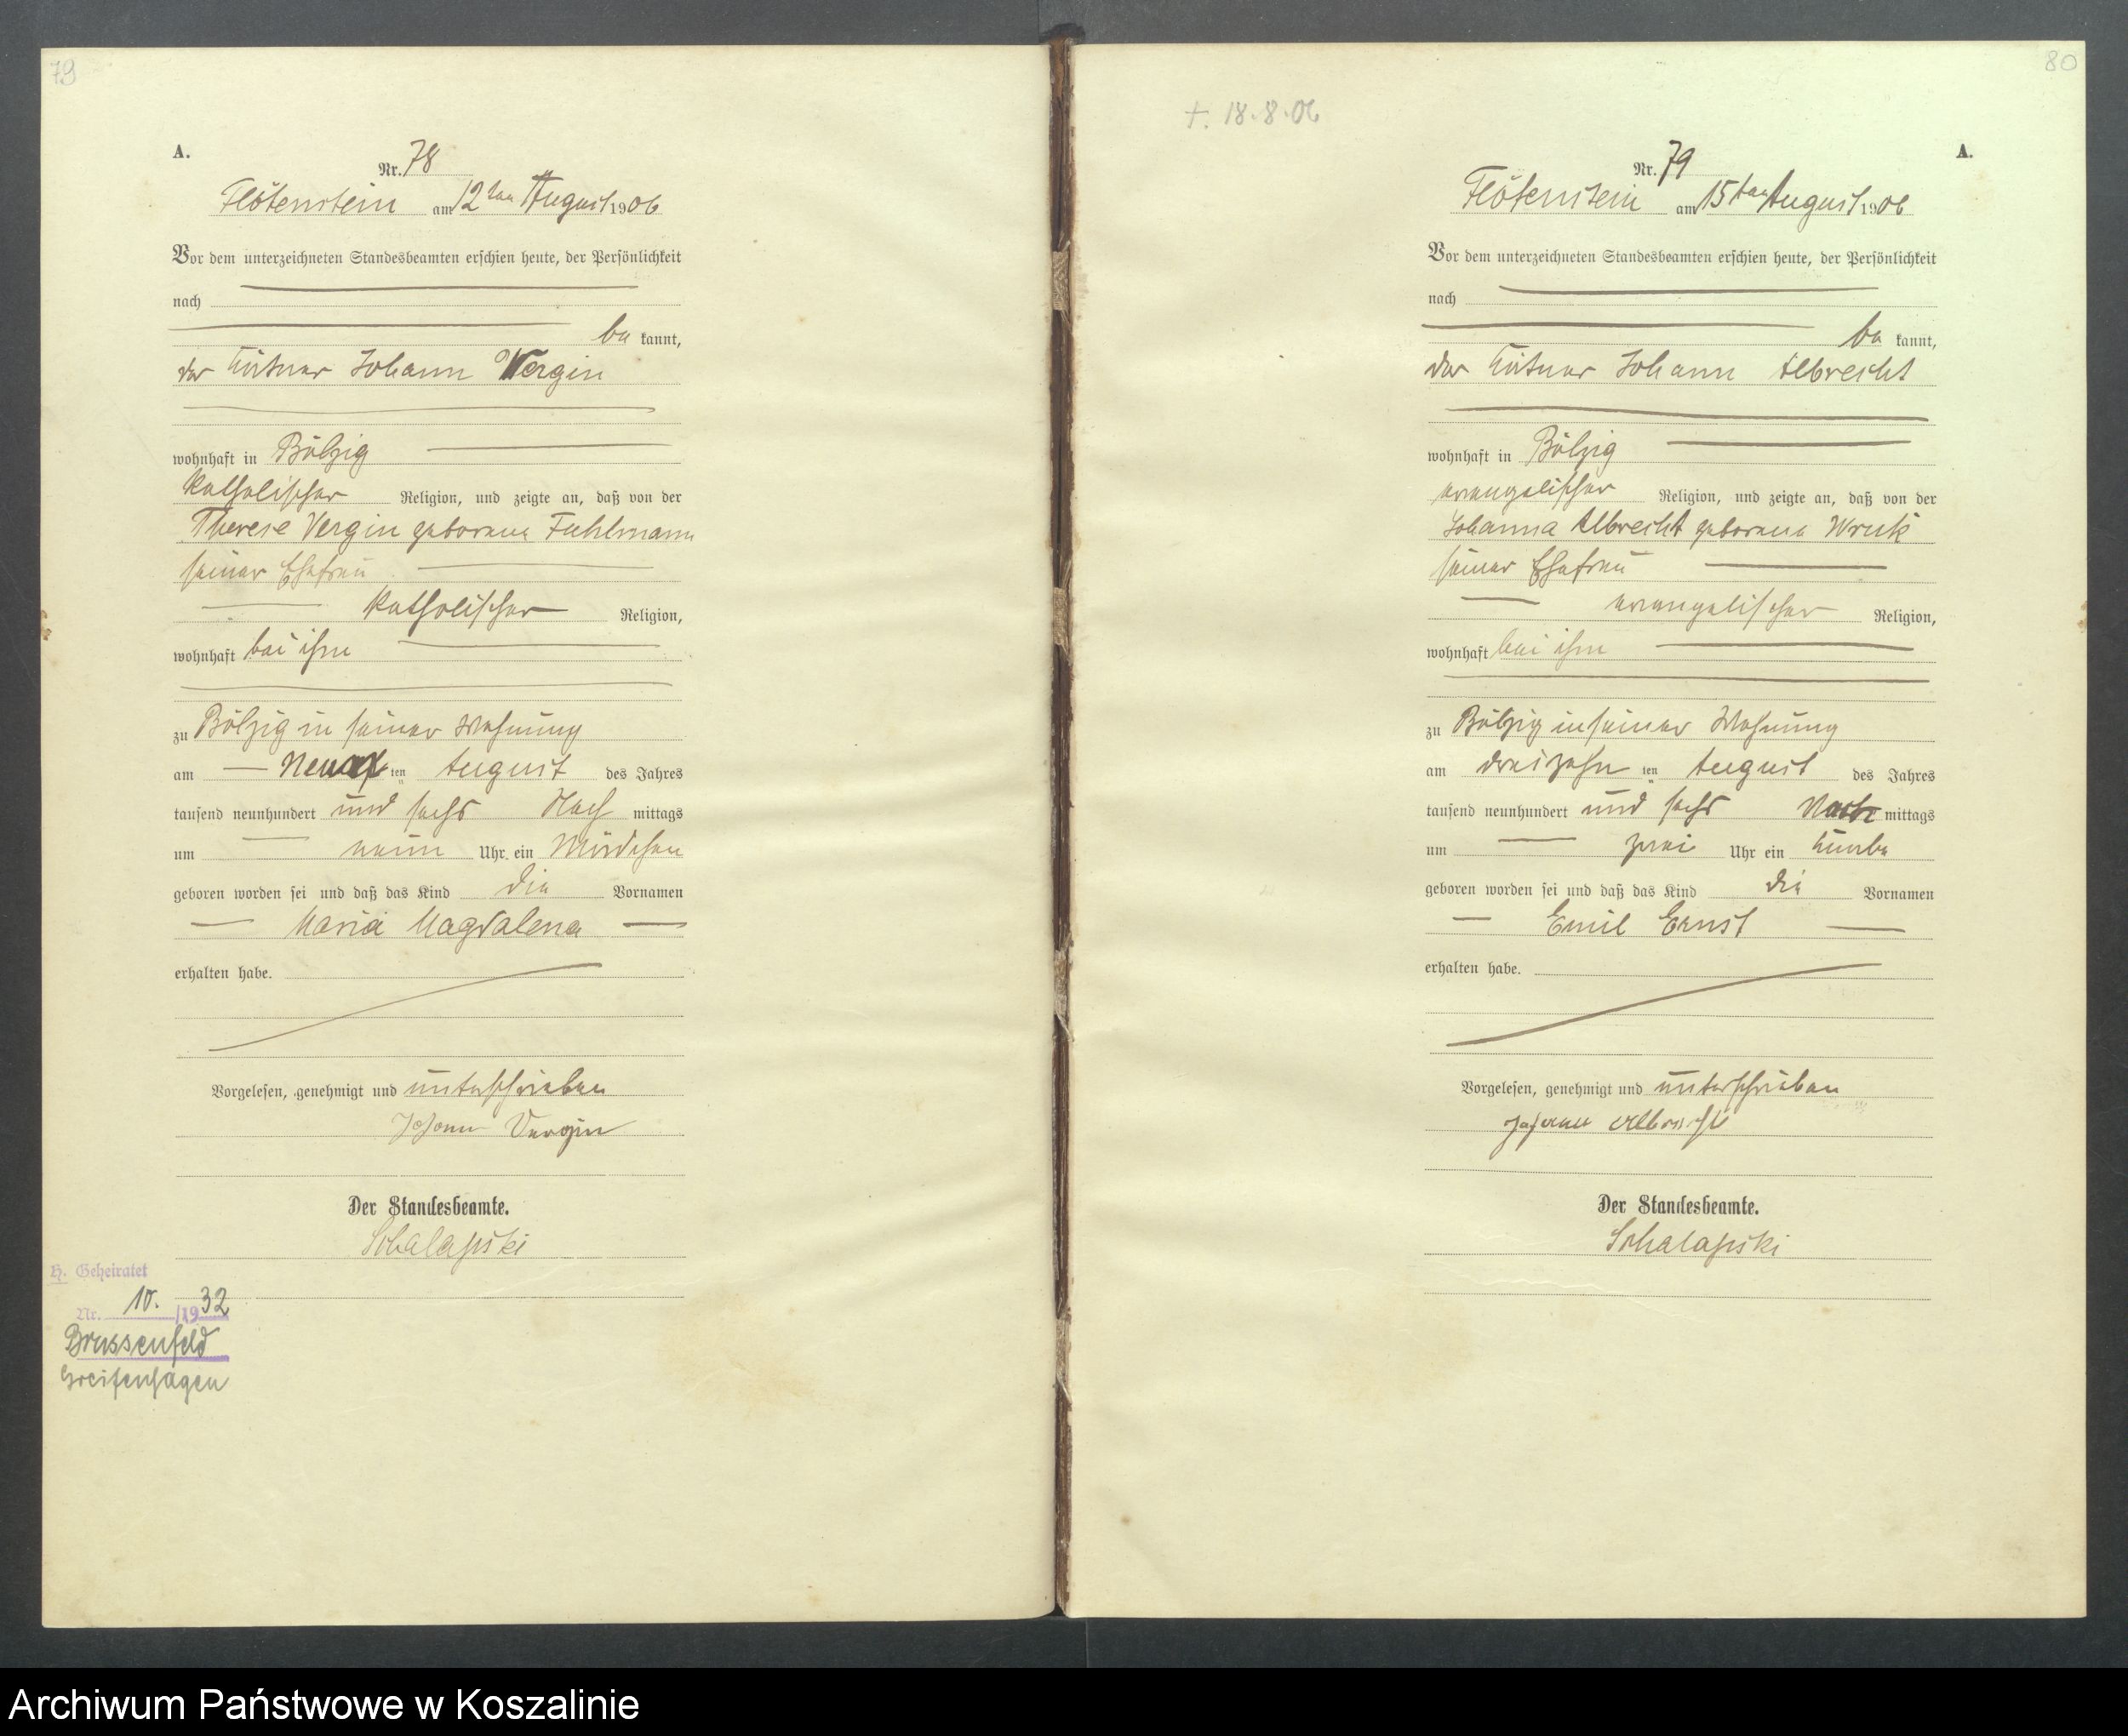 79
A.
Nr. 78
Flötenstein am 12ten August 1906
Vor dem unterzeichneten Standesbeamten erschien heute, der Persönlichkeit
nach
be kannt,
der Kätner Johann Vergin
wohnhaft in Bölzig
katholischer Religion, und zeigte an, daß von der
Therese Vergin geborene Fuhlmann
seiner Ehefrau
katholischer Religion,
wohnhaft bei ihm
zu Bölzig in seiner Wohnung
am Neun ten August des Jahres
tausend neunhundert und sechs Nach mittags
um neun Uhr ein Mädchen
geboren worden sei und daß das Kind die Vornamen
Maria Magdalena
erhalten habe.
Vorgelesen, genehmigt und unterschrieben
Johann Vergin
Der Standesbeamte.
Schalapski
H. Geheiratet
Nr. 10. /1932
Brussenfeld
Greifenhagen
80
+. 18.8.06
A.
Nr. 79
Flötenstein am 15ten August 1906
Vor dem unterzeichneten Standesbeamten erschien heute, der Persönlichkeit
nach
be kannt,
der Kätner Johann Albrecht
wohnhaft in Bölzig
evangelischer Religion, und zeigte an, daß von der
Johanna Albrecht geborene Wruk
seiner Ehefrau
evangelischer Religion,
wohnhaft bei ihm
zu Bölzig in seiner Wohnung
am dreizehn ten August des Jahres
tausend neunhundert und sechs Nach mittags
um zwei Uhr ein Knabe
geboren worden sei und daß das Kind die Vornamen
Emil Ernst
erhalten habe.
Vorgelesen, genehmigt und unterschrieben
Johann Albrecht
Der Standesbeamte.
Schalapski
Archiwum Państwowe w Koszalinie